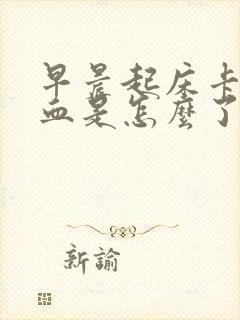 早晨起床卡
血是怎麼了
新諭